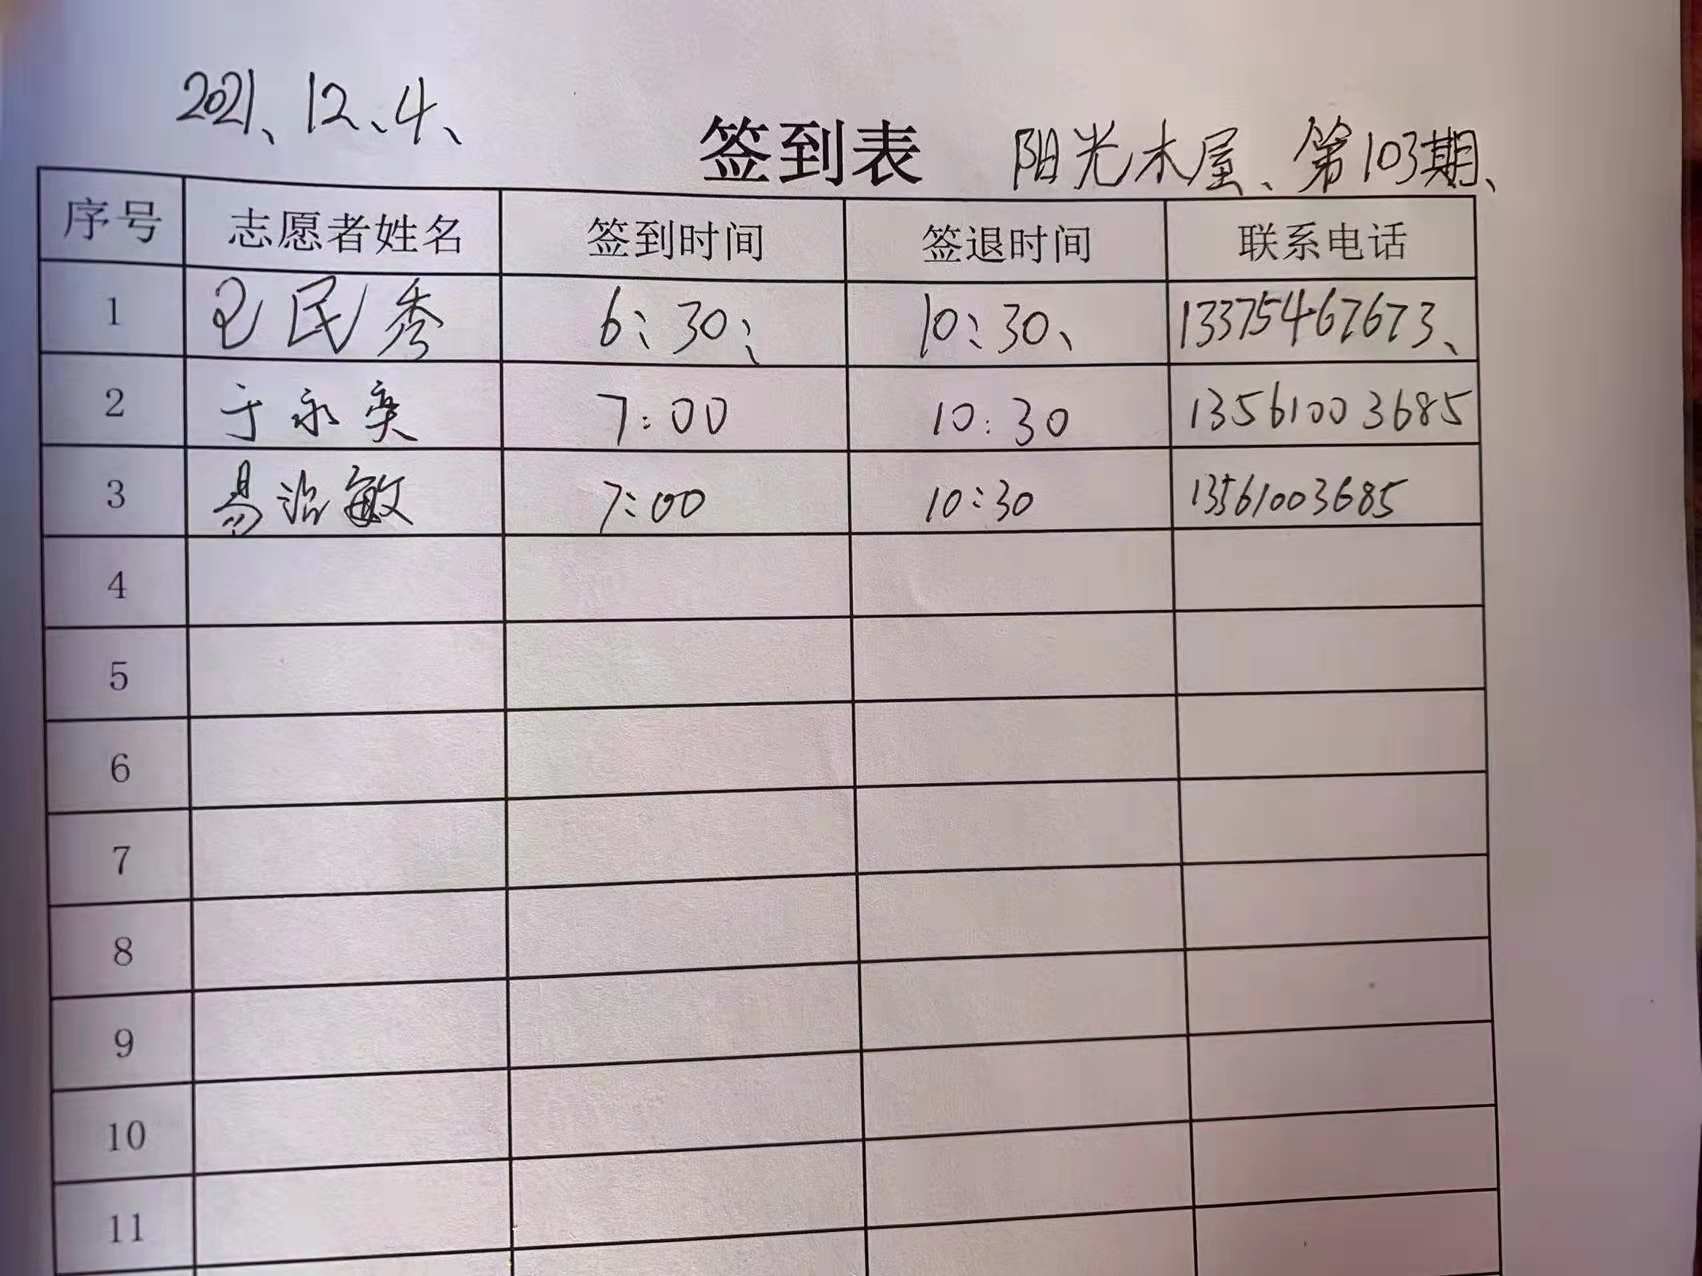 2021、12、4、
签到表 阳光木屋、第103期、
序号 志愿者姓名 签到时间 签退时间 联系电话
1 民秀 6:30; 10:30、 13375467673、
2 于永奕 7:00 10:30 13561003685
3 易治敏 7:00 10:30 13561003685
4
5
6
7
8
9
10
11